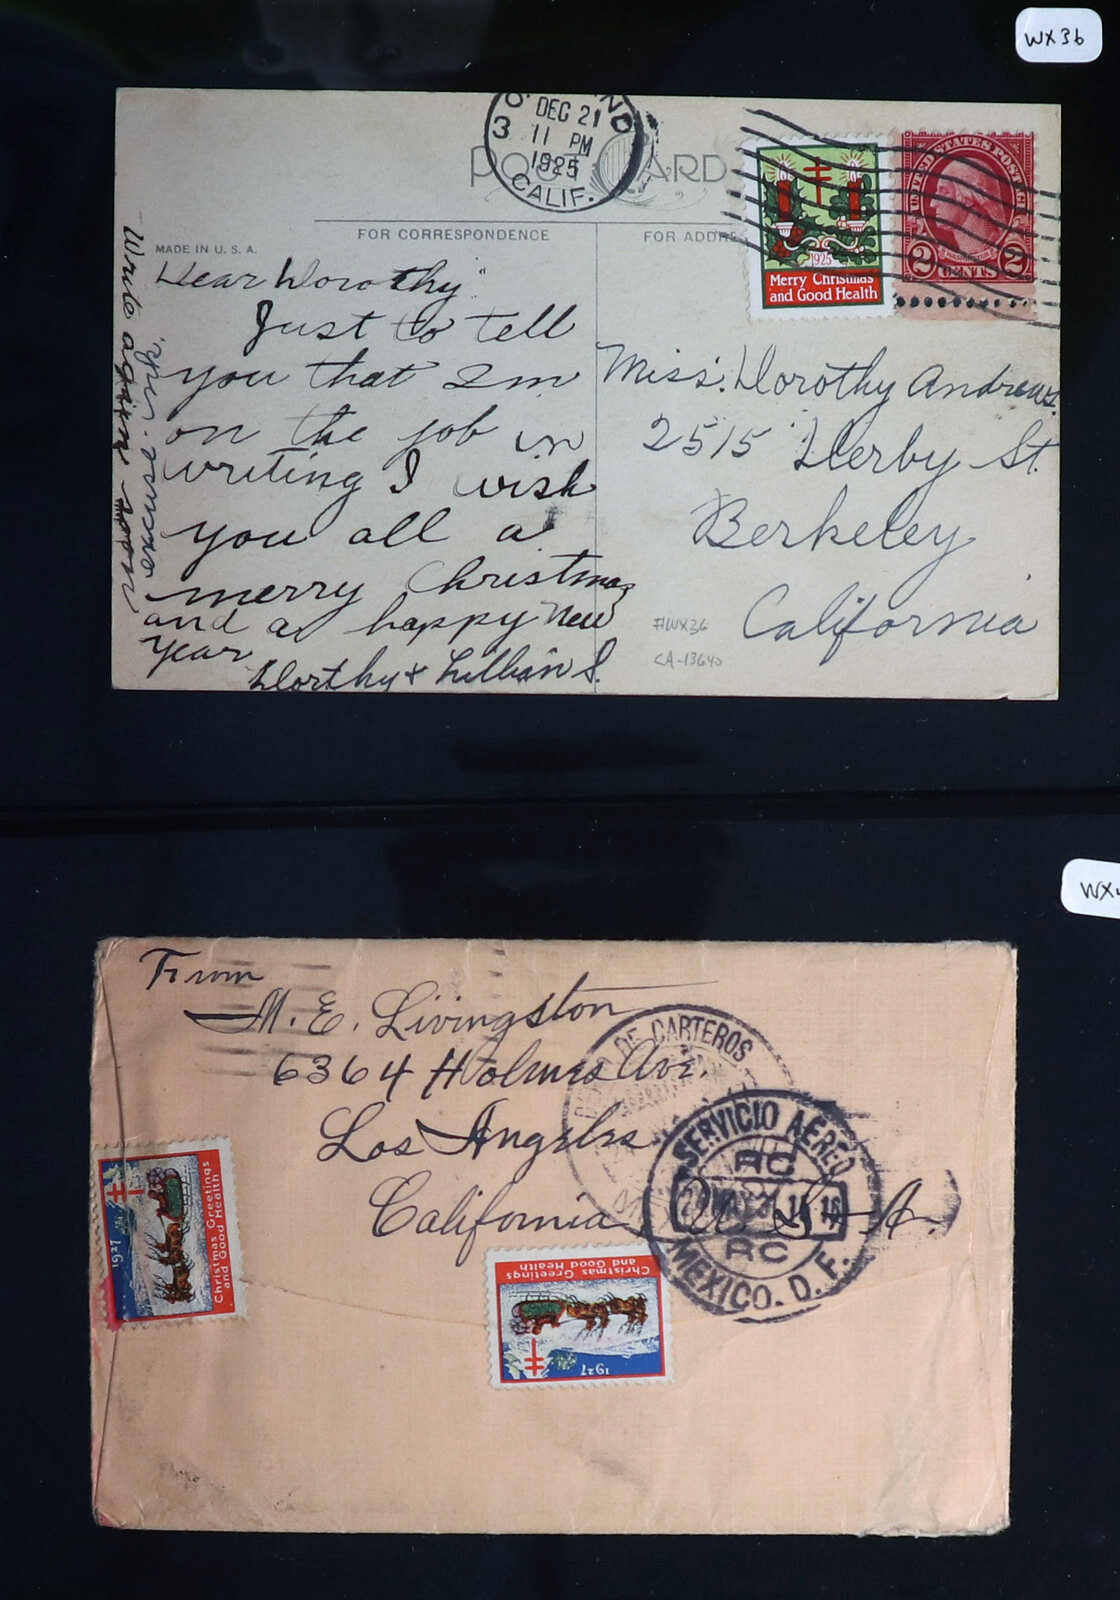 WX36
DEC 21
3 11 PM
1925
CALIF.
CARD
UNITED STATES POSTAGE
2 CENTS 2
1925
Merry Christmas
and Good Health
MADE IN U. S. A.
FOR CORRESPONDENCE
FOR ADDRE
Dear Dorothy"
Just to tell
you that I'm
on the job in
writing I wish
you all a
merry Christmas
and a happy New
Year
Dorthy + Lillian S.
Write again soon
excuse
Miss. Dorothy Andrews.
2515 Derby St.
Berkeley
California
#WX36
CA-13640
WX
From
M. E. Livingston
6364 Holmes Ave.
Los Angeles
California
U. S. A.
DE CARTEROS
SERVICIO AEREO
RC
RC
MEXICO. D. F.
1927
Christmas Greetings
and Good Health
Christmas Greetings
and Good Health
1927